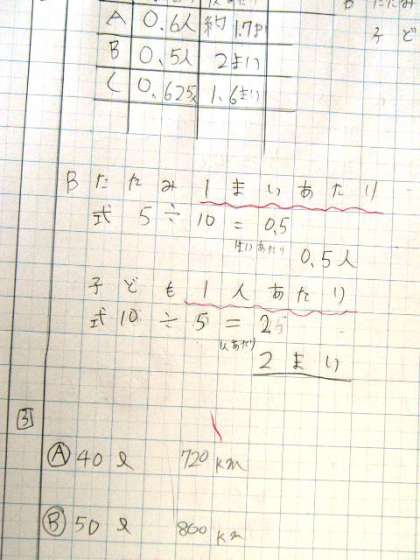 A 0.6人 約1.7まい
B 0.5人 2まい
C 0.625人 1.6まい
B たたみ
子ど
B たたみ1まいあたり
式 5÷10=0.5
1まいあたり 0.5人
子ども1人あたり
式 10÷5=2
1人あたり
2まい
3
A 40ℓ 720km
B 50ℓ 800km